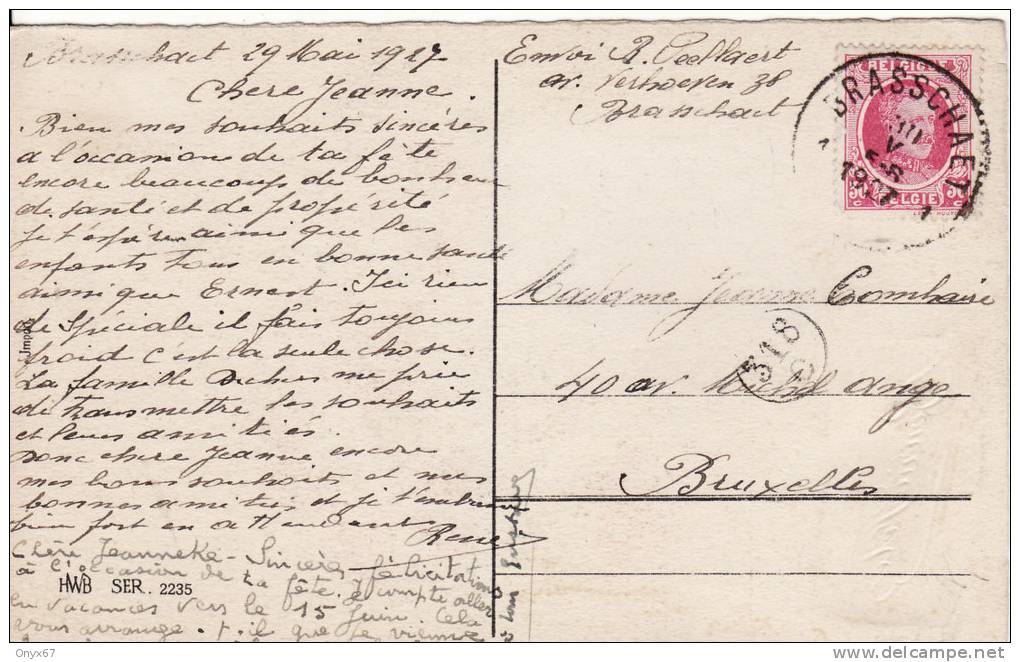 Brasschaet 29 Mai 1927
Chere Jeanne.
Bien mes souhaits sincères
a l'occasion de ta fête
encore beaucoup de bonheur
de santé et de propérité
je t'espère ainsi que les
enfants tous en bonne santé
ainsi que Ernest. Ici rien
de spéciale il fais toujours
froid c'est la seule chose.
La famille me prie
de transmettre les souhaits
et leurs amitiés.
Donc chere Jeanne encore
mes bons souhaits et mes
bonnes amitiés et je t'embrasse
bien fort en attendant
René
Chère Jeanneke - Sincères félicitations
à l'occasion de ta fête. Je compte aller
en vacances vers le 15 Juin. Cela
vous arrange-t-il que je vienne
HWB SER. 2235
Import
Envoi R.
av. Verhoeven 38
Brasschaet
BELGIQUE
BELGIE
BRASSCHAET
1927
1
Madame Jeanne Combaire
318
40 av. Michel Ange
Bruxelles
Onyx67
www.delcampe.net